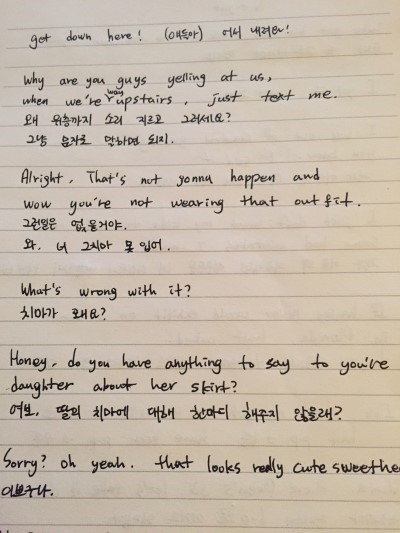 get down here! (얘들아) 어서 내려와!
Why are you guys yelling at us,
when we're way upstairs, just text me.
왜 위층까지 소리 지르고 그러세요?
그냥 문자로 말하면 되지.
Alright, That's not gonna happen and
wow you're not wearing that outfit.
그런일은 없을거야.
와. 너 그치마 못 입어.
What's wrong with it?
치마가 왜요?
Honey, do you have anything to say to you're
daughter about her skirt?
여보, 딸의 치마에 대해 한마디 해주지 않을래?
Sorry? oh yeah. that looks really cute sweethe
이쁘구나.